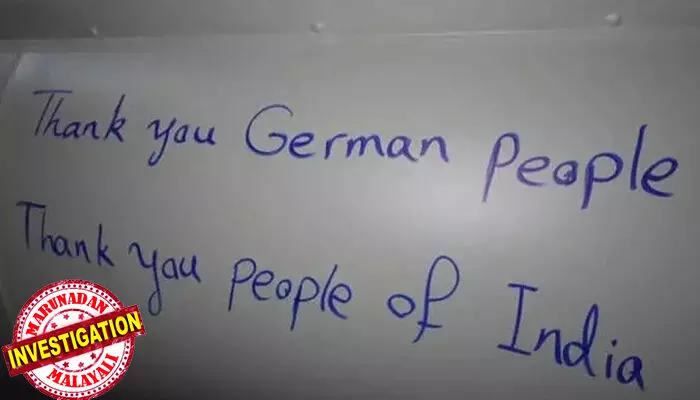 Thank you German People
Thank you people of India
MARUNADAN
INVESTIGATION
MALAYALI